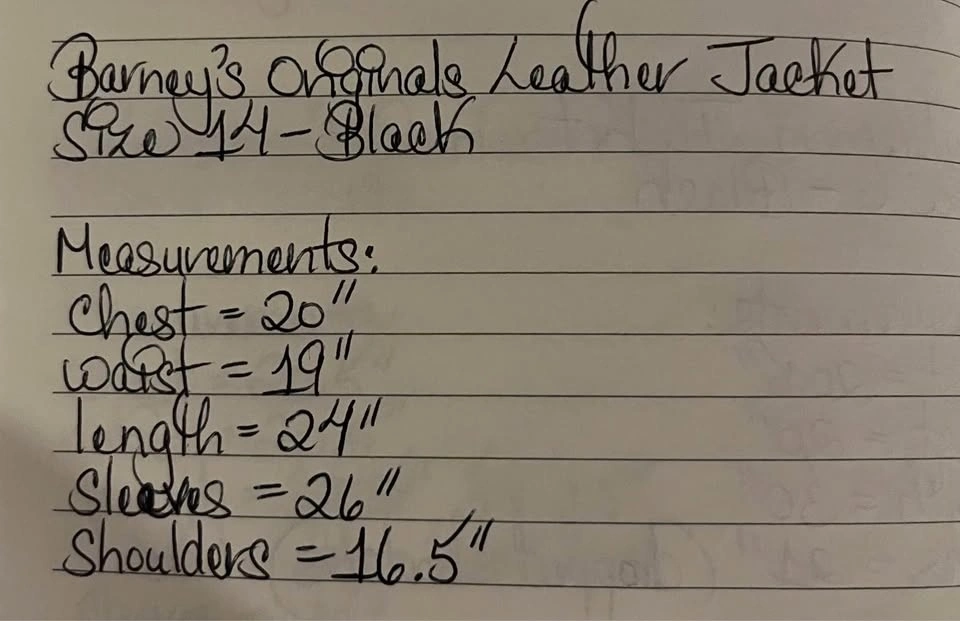 Barney's Originals Leather Jacket
Size 14 - Black
Measurements:
Chest = 20"
Waist = 19"
length = 24"
Sleeves = 26"
Shoulders = 16.5"